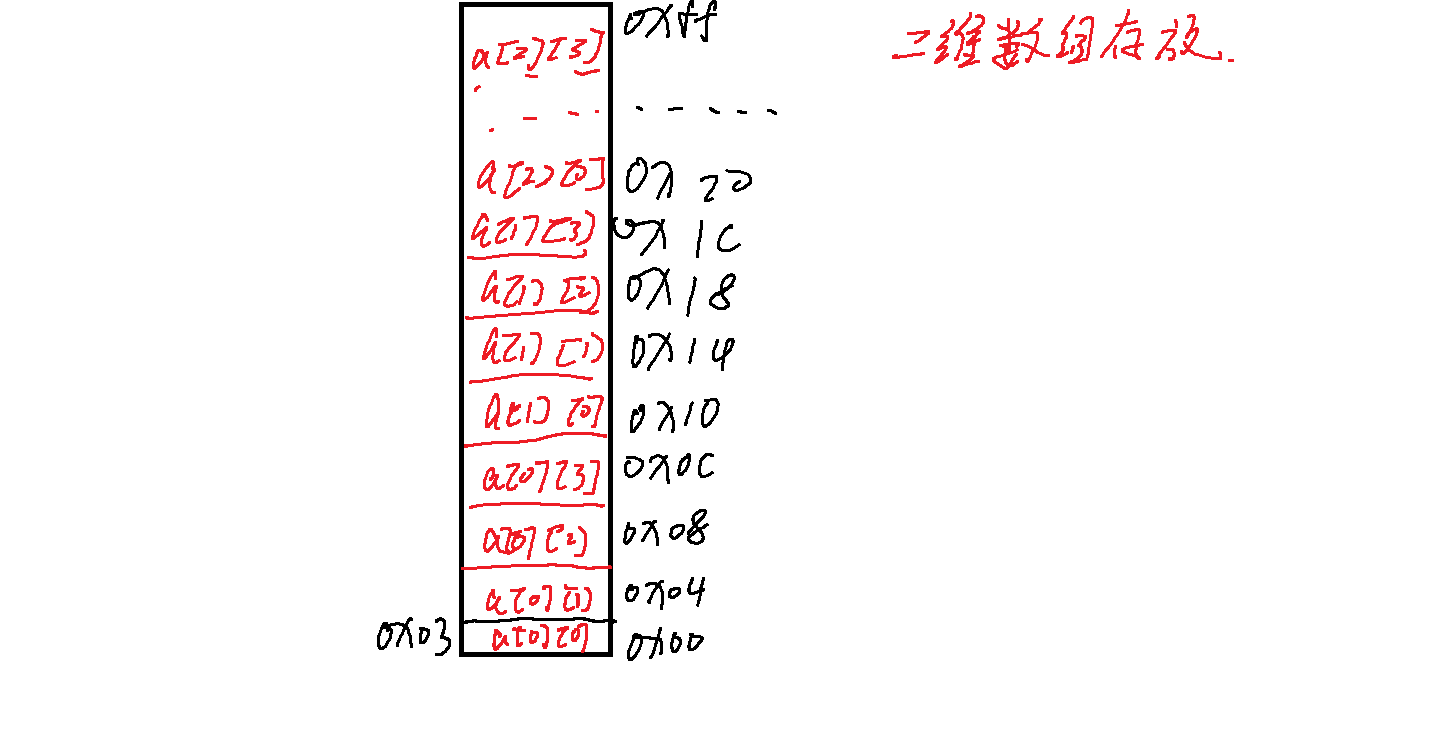 0xff
二维数组存放.
a[2][3]
. - - - . - - - -
a[2][0] 0x20
a[1][3] 0x1C
a[1][2] 0x18
a[1][1] 0x14
a[1][0] 0x10
a[0][3] 0x0C
a[0][2] 0x08
a[0][1] 0x04
0x03 a[0][0] 0x00